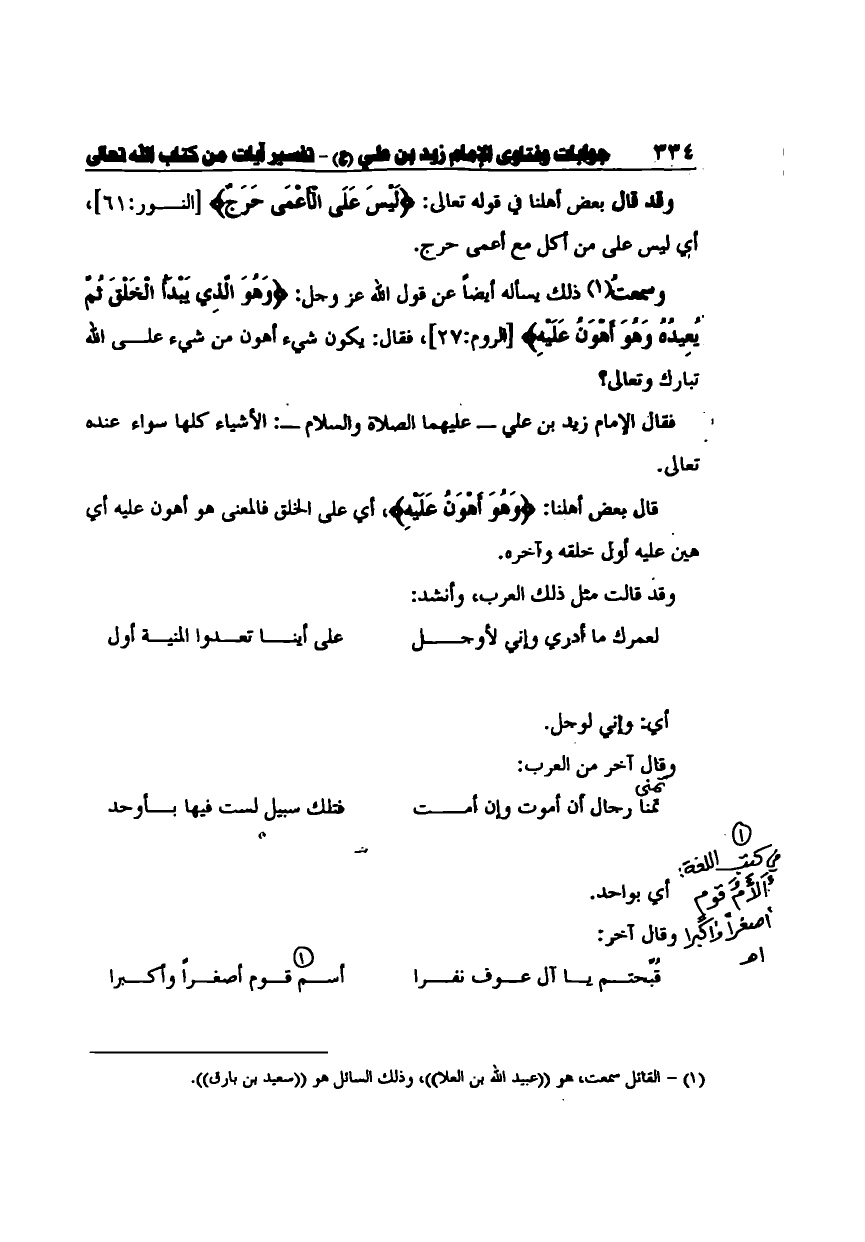 ٣٣٤ جوابات وفتاوى الإمام زيد بن علي (ع) - تفسير آيات من كتاب الله تعالى
وقد قال بعض أهلنا في قوله تعالى: ﴿لَيْسَ عَلَى الْأَعْمَى حَرَجٌ﴾ [النــور:٦١]،
أي ليس على من أكل مع أعمى حرج.
وسمعتُ(١) ذلك يسأله أيضاً عن قول الله عز وجل: ﴿وَهُوَ الَّذِي يَبْدَأُ الْخَلْقَ ثُمَّ
يُعِيدُهُ وَهُوَ أَهْوَنُ عَلَيْهِ﴾ [الروم:٢٧]، فقال: يكون شيء أهون من شيء علــى الله
تبارك وتعالى؟
فقال الإمام زيد بن علي ــ عليهما الصلاة والسلام ــ: الأشياء كلها سواء عنده
تعالى.
قال بعض أهلنا: ﴿وَهُوَ أَهْوَنُ عَلَيْهِ﴾، أي على الخلق فالمعنى هو أهون عليه أي
هين عليه أول خلقه وآخره.
وقد قالت مثل ذلك العرب، وأنشد:
لعمرك ما أدري وإني لأوجــــل على أينــــا تعــدوا المنيــة أول
أي: وإني لوجل.
وقال آخر من العرب:
تمنى
تمنا رجال أن أموت وإن أمــــت فتلك سبيل لست فيها بــأوحد
(١)
في كتب اللغة:
أَلْأَمُ قوم
أي بواحد.
أصغراً وأكبرا
وقال آخر:
اهـ
(١)
قُبّحتــم يــا آل عــوف نفــرا أســم قــوم أصغــراً وأكــبرا
(١) – القائل سمعت، هو ((عبيد الله بن العلا))، وذلك السائل هو ((سعيد بن بارق)).